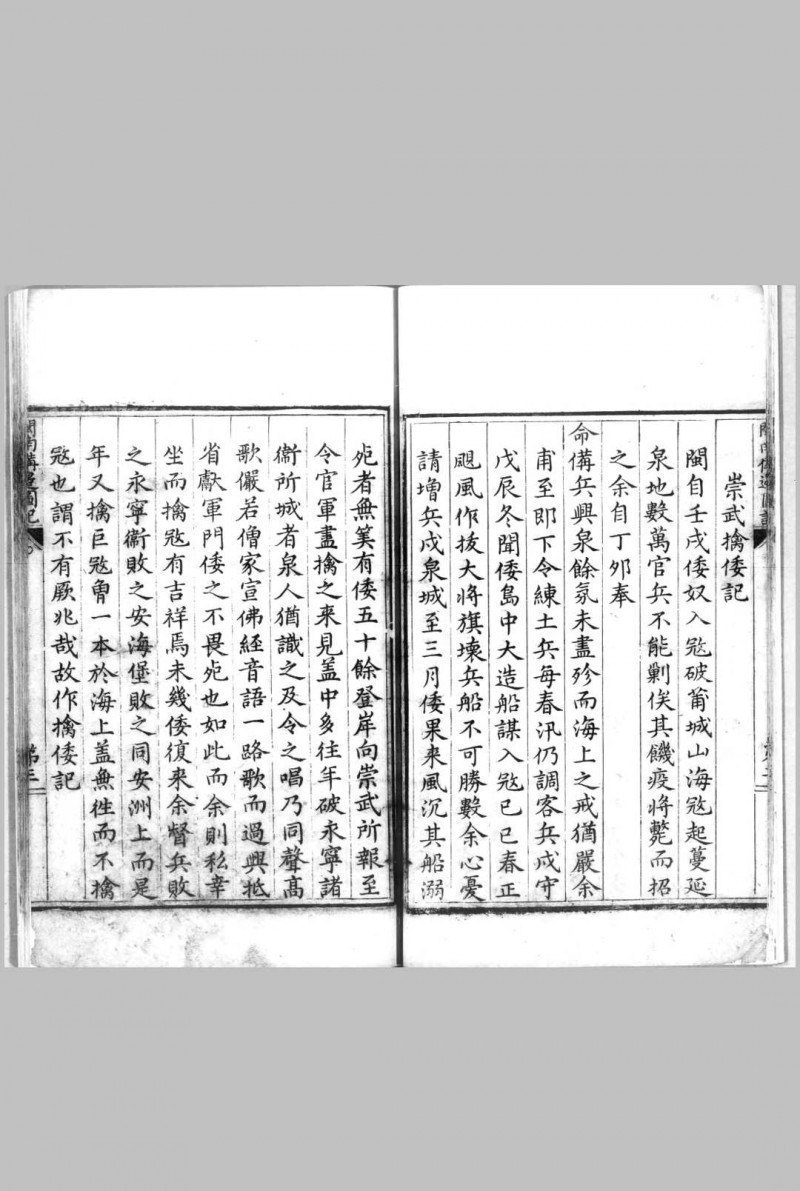 崇武擒倭記
閩自壬戌倭奴入冦破莆城山海冦起蔓延
泉地數萬官兵不能剿俟其饑疫將斃而招
之余自丁夘奉
命俻兵興泉餘氛未盡殄而海上之戒猶嚴余
甫至即下令練土兵每春汛仍調客兵戍守
戊辰冬聞倭島中大造船謀入冦己巳春正
颶風作拔大將旗壞兵船不可勝數余心憂
請增兵戍泉城至三月倭果来風沉其船溺
死者無筭有倭五十餘登岸向崇武所報至
令官軍盡擒之来見盖中多往年破永寧諸
衛所城者泉人猶識之及令之唱乃同聲髙
歌儼若僧家宣佛經音語一路歌而過興抵
省獻軍門倭之不畏死也如此而余則私幸
坐而擒冦有吉祥焉未幾倭復来余督兵敗
之永寧衛敗之安海堡敗之同安洲上而是
年又擒巨冦曾一本於海上盖無徃而不擒
冦也謂不有厥兆哉故作擒倭記
第三